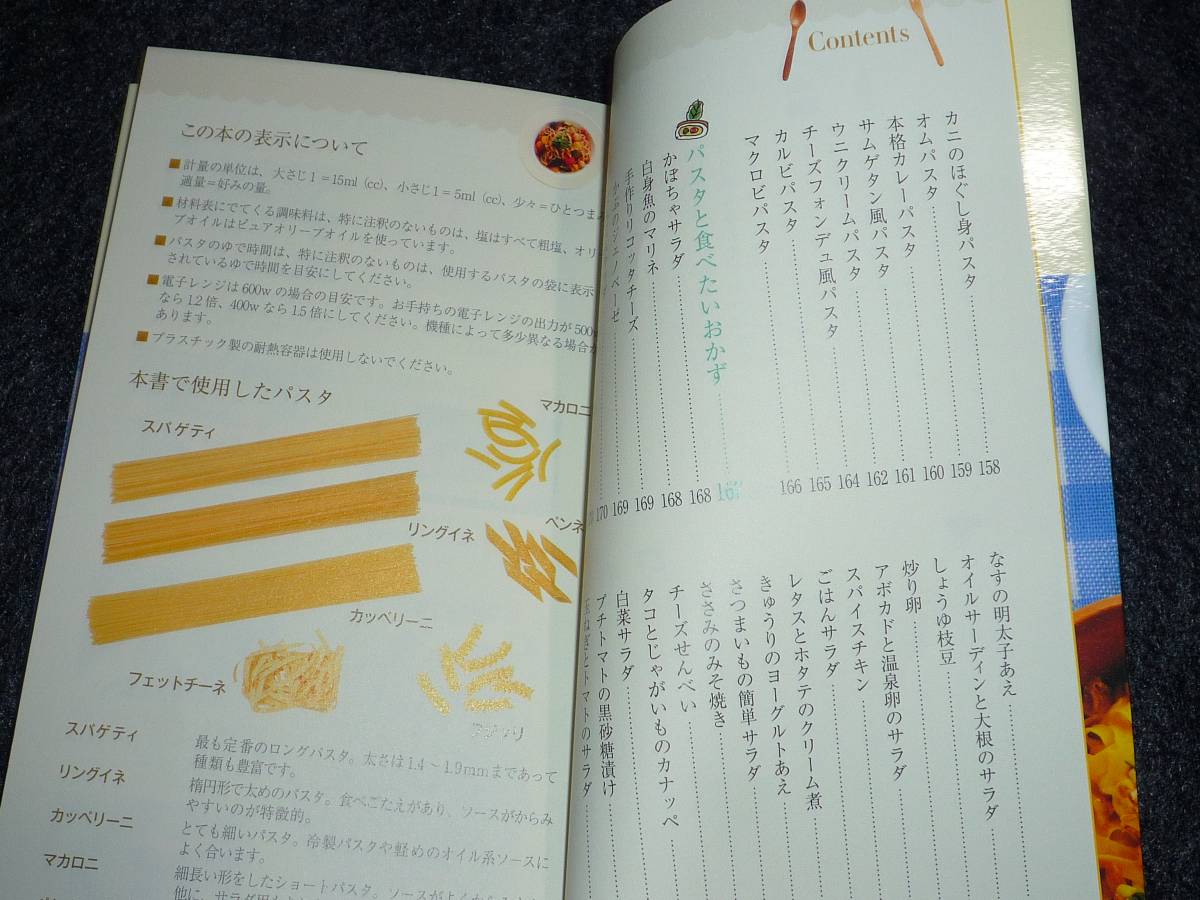 この本の表示について
■計量の単位は、大さじ1＝15ml (cc)、小さじ1＝5ml (cc)、少々＝ひとつま
適量＝好みの量。
■材料表にでてくる調味料は、特に注釈のないものは、塩はすべて粗塩、オリ
ブオイルはピュアオリーブオイルを使っています。
■パスタのゆで時間は、特に注釈のないものは、使用するパスタの袋に表示
されているゆで時間を目安にしてください。
■電子レンジは600wの場合の目安です。お手持ちの電子レンジの出力が500
なら1.2倍、400wなら1.5倍にしてください。機種によって多少異なる場合が
あります。
■プラスチック製の耐熱容器は使用しないでください。
本書で使用したパスタ
スパゲティ
マカロニ
リングイネ
ペンネ
カッペリーニ
フェットチーネ
スパゲティ
最も定番のロングパスタ。太さは1.4～1.9mmまであって
種類も豊富です。
リングイネ
楕円形で太めのパスタ。食べごたえがあり、ソースがからみ
やすいのが特徴的。
カッペリーニ
とても細いパスタ。冷製パスタや軽めのオイル系ソースに
よく合います。
マカロニ
細長い形をしたショートパスタ。
Contents
カニのほぐし身パスタ 158
オムパスタ 159
本格カレーパスタ 160
サムゲタン風パスタ 161
ウニクリームパスタ 162
チーズフォンデュ風パスタ 164
カルビパスタ 165
マクロビパスタ 166
パスタと食べたいおかず 167
かぼちゃサラダ 168
白身魚のマリネ 168
手作りリコッタチーズ 169
かぶのジェノベーゼ 169
170
なすの明太子あえ
オイルサーディンと大根のサラダ
しょうゆ枝豆
炒り卵
アボカドと温泉卵のサラダ
スパイスチキン
ごはんサラダ
レタスとホタテのクリーム煮
きゅうりのヨーグルトあえ
さつまいもの簡単サラダ
ささみのみそ焼き
チーズせんべい
タコとじゃがいものカナッペ
白菜サラダ
プチトマトの黒砂糖漬け
玉ねぎとトマトのサラダ